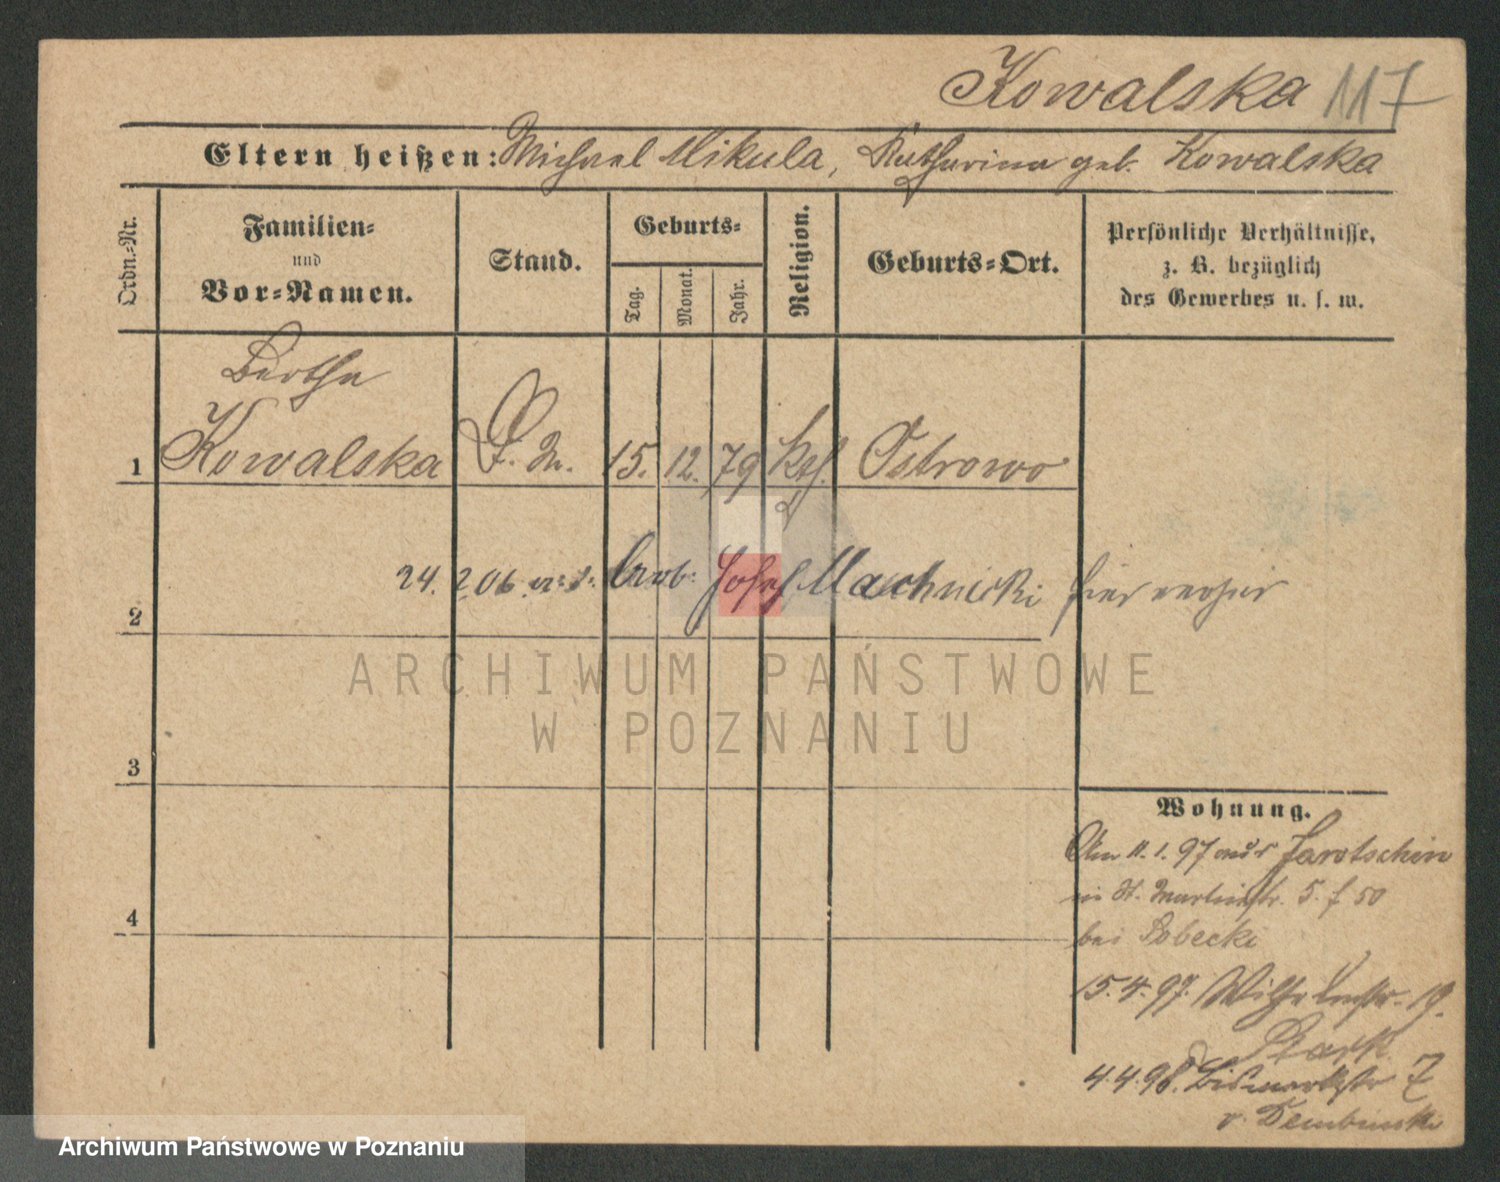 Kowalska 117
Eltern heißen: Michael Mikula, Katharina geb. Kowalska
Ordn.-Nr.
Familien-
und
Vor-Namen.
Stand.
Geburts-
Tag.
Monat.
Jahr.
Religion.
Geburts-Ort.
Persönliche Verhältnisse,
z. B. bezüglich
des Gewerbes u. s. w.
Bertha
1 Kowalska D. M. 15. 12. 79 kth. Ostrowo
2 24. 2 06 Arb. Josef Machnicki hier
3
4
Wohnung.
Am 11. 1. 97 aus Jarotschin
in St. Martinstr. 5. f 50
bei Sobecki
15. 4. 97. Wilhelmstr. 19.
Stark
4. 4. 98. Bismarckstr 7
v. Dembinski
ARCHIWUM PAŃSTWOWE
W POZNANIU
Archiwum Państwowe w Poznaniu